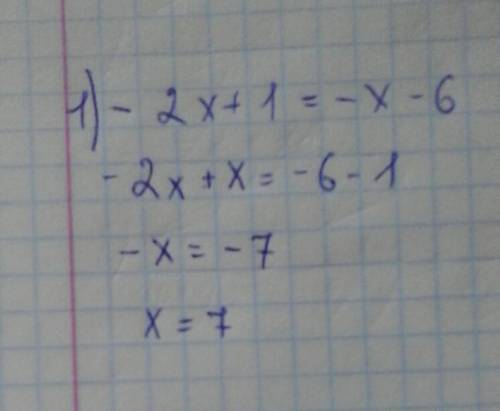 1) - 2x + 1 = -x - 6
-2x + x = -6 - 1
-x = -7
x = 7